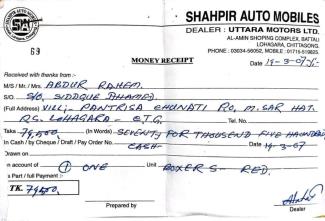 SHAHPIR AUTO MOBILES
DEALER : UTTARA MOTORS LTD.
AL-AMIN SHOPING COMPLEX, BATTALI
LOHAGARA, CHITTAGONG.
PHONE : 03034-56052, MOBILE : 01715-519825.
69
MONEY RECEIPT
Date 19-3-07
Received with thanks from :-
M/S / Mr. / Mrs. ABDUR RAHEM
S/O. S/O. SIDDQUE AHAMED
(Full Address) VILL;- PANTRISA CHUNATI PO, M.SAR HAT.
P.S. LOHAGARA - C.T.G. Tel. No.
Taka 74,500 (In Words) SEVENTY FOR THOUSAND FIVE HAUNDERD
In Cash / by Cheque / Draft / Pay Order No. CASH Date 19-3-07
Drawn on
n account of 1 ONE BOXER S - RED.
s Part / full Payment :-
TK. 74,500
Prepared by